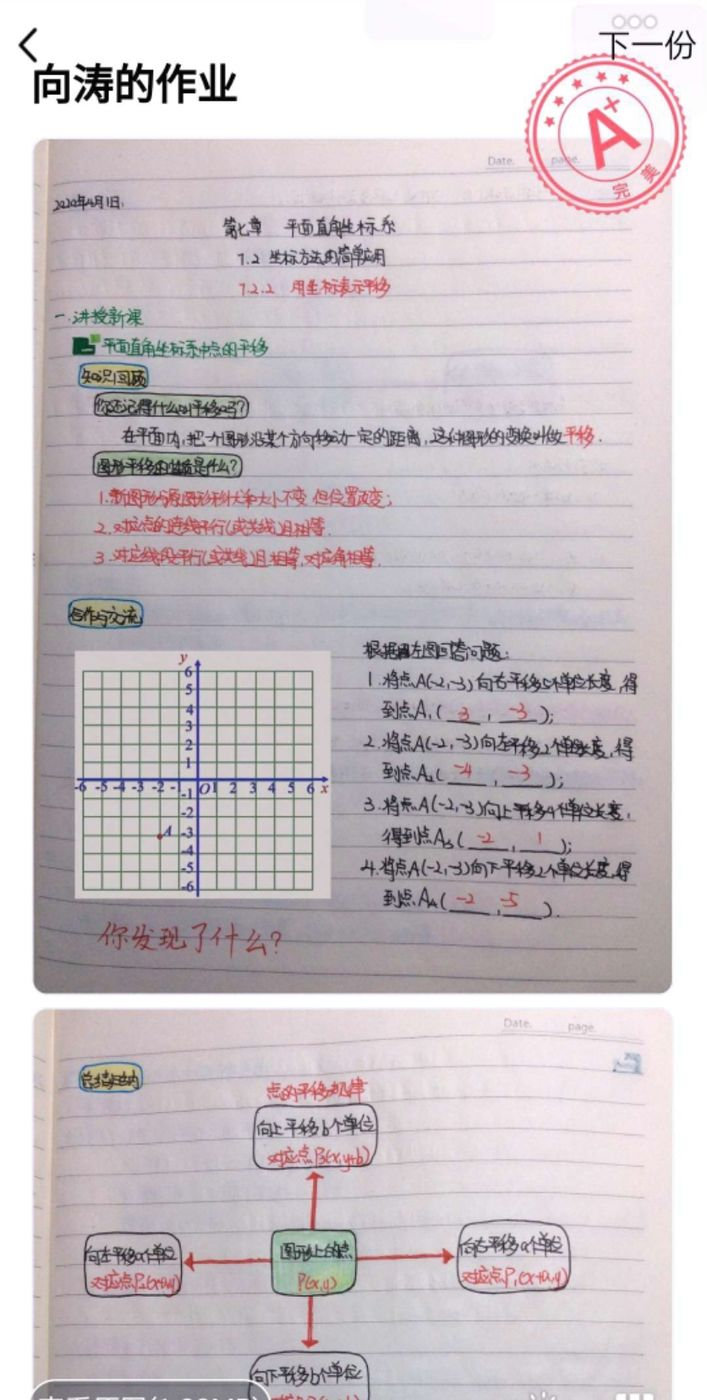 下一份
向涛的作业
A+
完美
Date. page.
2020年4月1日.
第七章 平面直角坐标系
7.2 坐标方法的简单应用
7.2.2 用坐标表示平移
一.讲授新课
平面直角坐标系中点的平移
知识回顾
你还记得什么叫平移吗?
在平面内,把一个图形沿某个方向移动一定的距离,这种图形的变换叫做平移.
图形平移的性质是什么?
1.新图形与原图形形状和大小不变,但位置改变;
2.对应点的连线平行(或共线)且相等.
3.对应线段平行(或共线)且相等,对应角相等.
合作与交流
y
6
5
4
3
2
1
-6 -5 -4 -3 -2 -1 O 1 2 3 4 5 6 x
-1
-2
A -3
-4
-5
-6
根据左图回答问题:
1.将点A(-2,-3)向右平移5个单位长度,得
到点A₁(3,-3);
2.将点A(-2,-3)向左平移2个单位长度,得
到点A₂(-4,-3);
3.将点A(-2,-3)向上平移4个单位长度,
得到点A₃(-2,1);
4.将点A(-2,-3)向下平移2个单位长度,得
到点A₄(-2,-5).
你发现了什么?
Date. page.
总结归纳
点的平移规律
向上平移b个单位
对应点P₃(x,y+b)
向左平移a个单位
图形上的点
P(x,y)
向右平移a个单位
对应点P₁(x+a,y)
向下平移b个单位